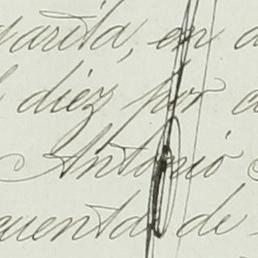 garita, en
diez por
Antonio
quenta de